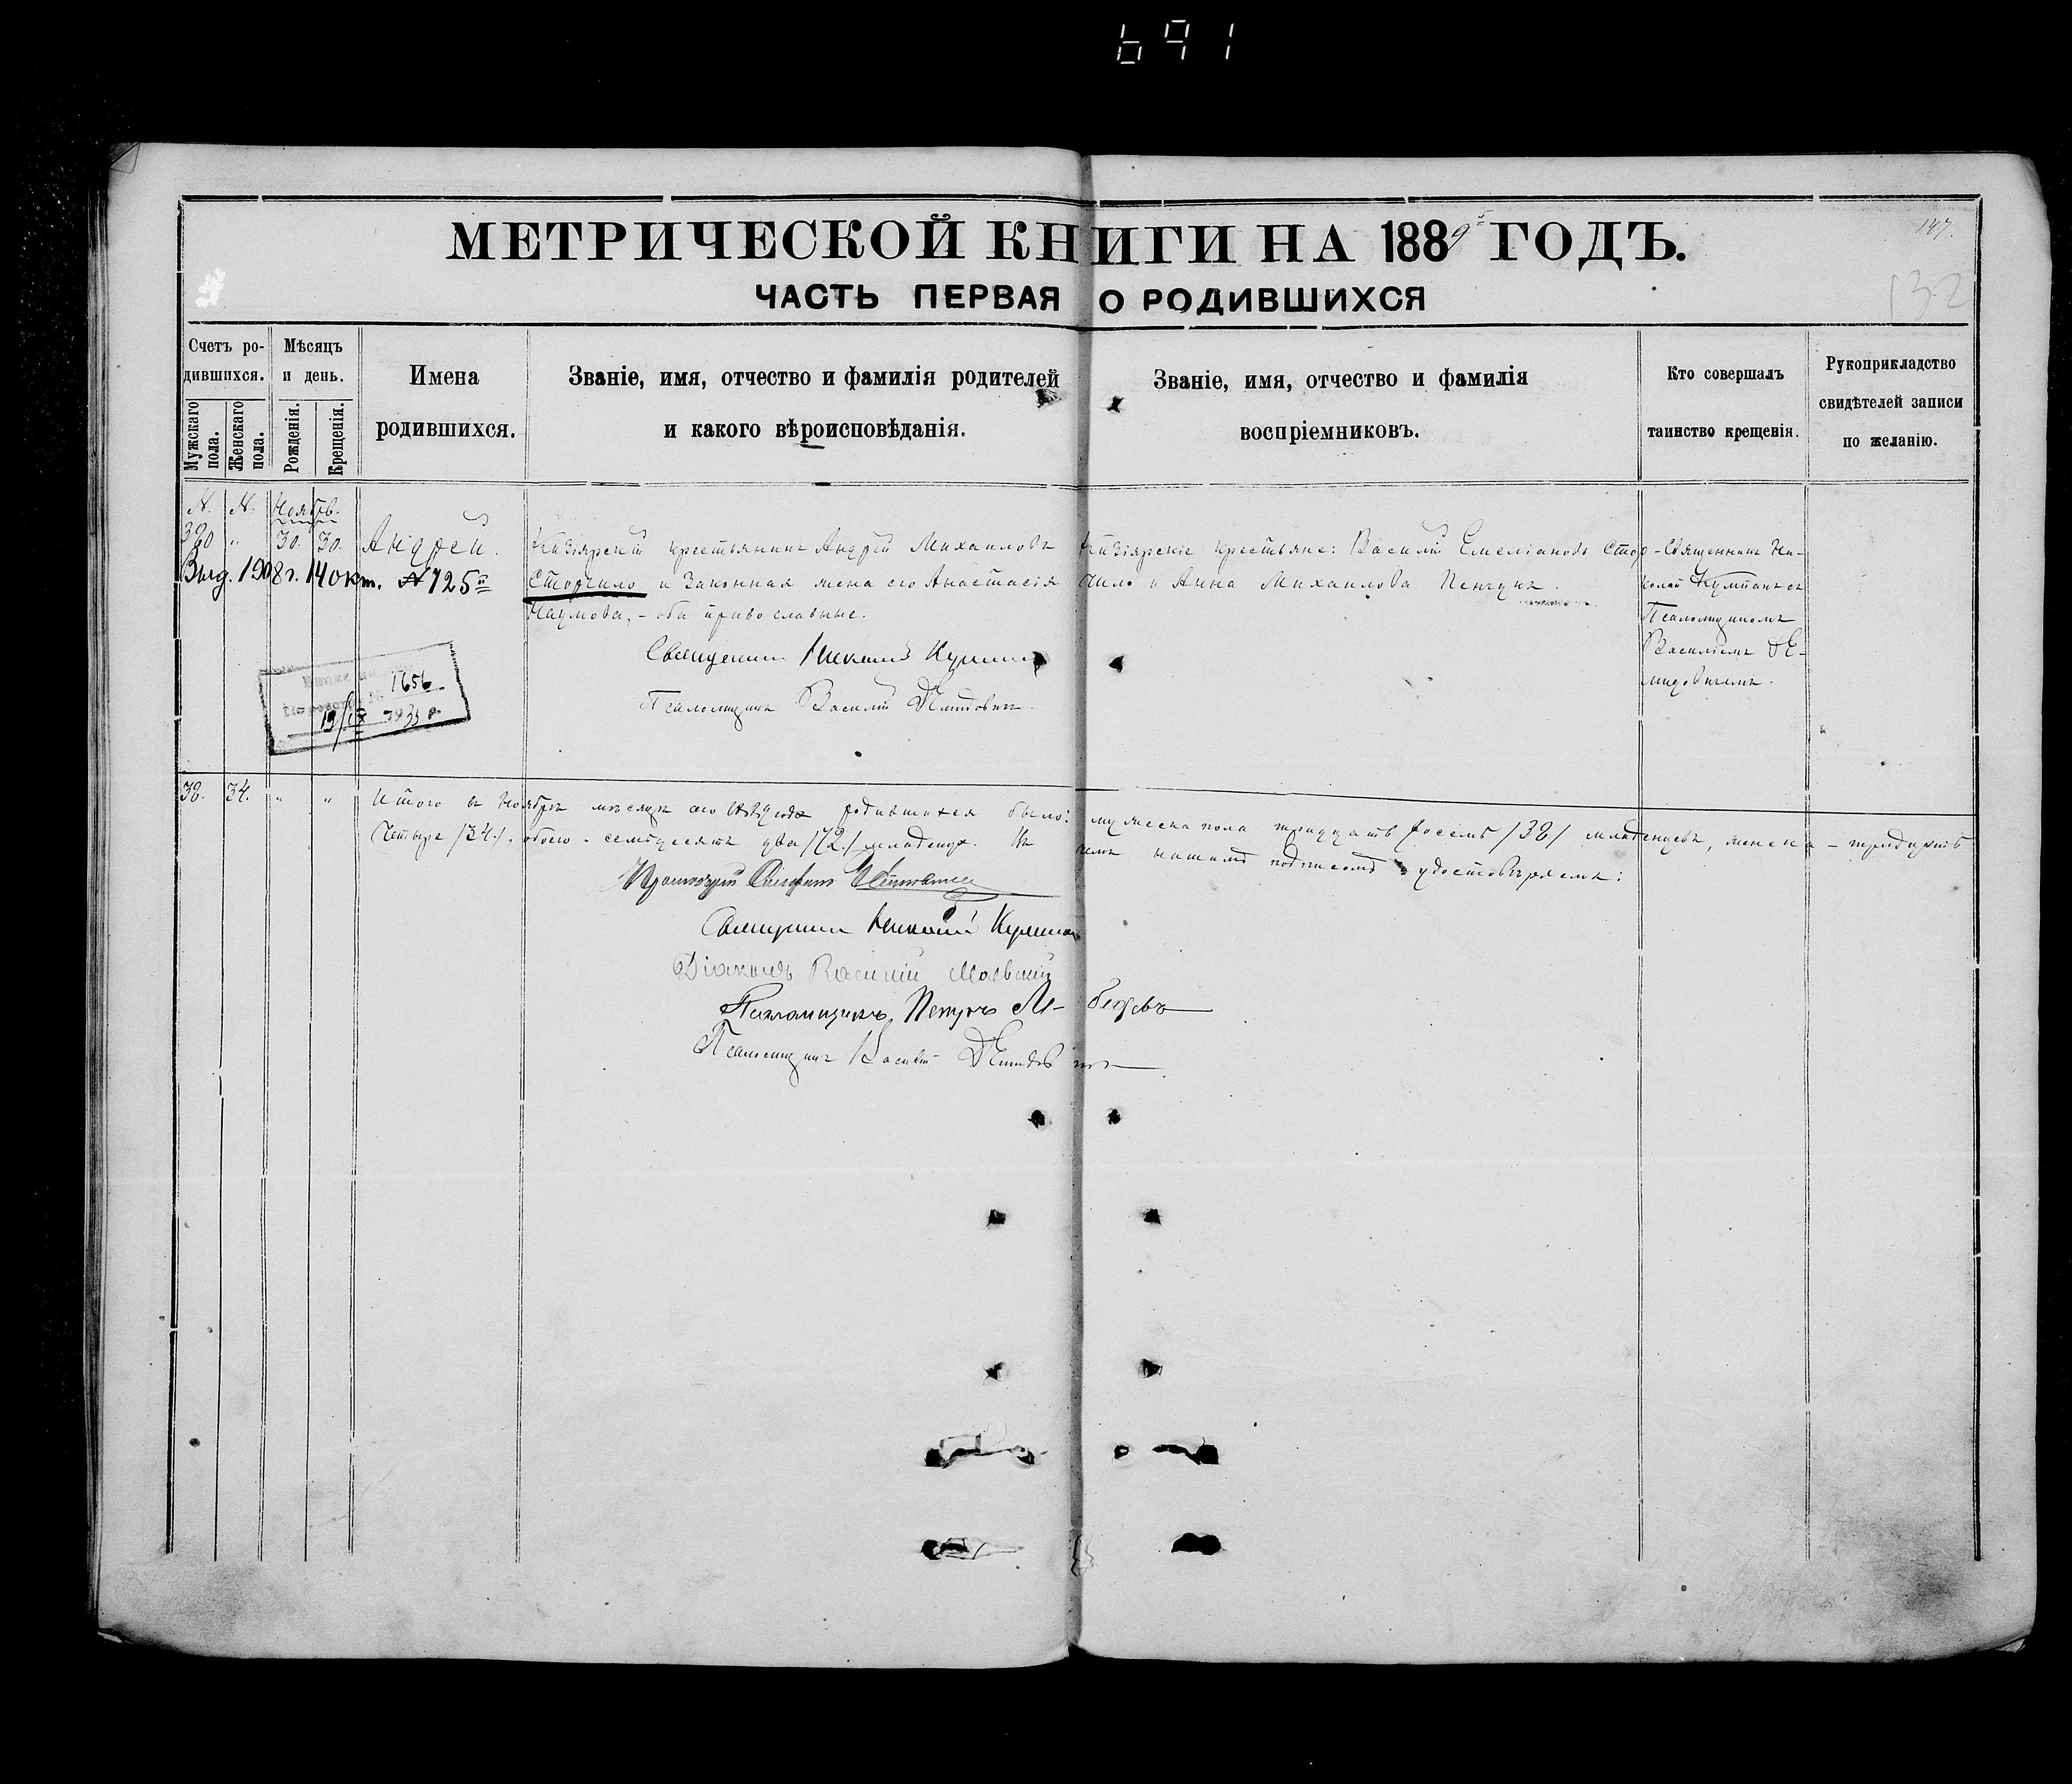 691
МЕТРИЧЕСКОЙ КНИГИ НА 1889й ГОДЪ.
147.
132
ЧАСТЬ ПЕРВАЯ О РОДИВШИХСЯ
Счетъ ро-
дившихся.
Мужскаго пола.
Женскаго пола.
Мѣсяцъ
и день.
Рожденія.
Крещенія.
Имена
родившихся.
Званіе, имя, отчество и фамилія родителей
и какого вѣроисповѣданія.
Званіе, имя, отчество и фамилія
воспріемниковъ.
Кто совершалъ
таинство крещенія.
Рукоприкладство
свидѣтелей записи
по желанію.
№. №. Ноябр.
380 " 30. 30. Андрей.
Выд. 1908 г. 14 окт. №725
крестьянинъ Андрей Михаиловъ
Сторчило и законная жена его Анастасія
Наумова, - оба православные.
Священникъ Николай
Псаломщикъ Василій
крестьяне: Василій Емеліановъ Стор-
чило и Анна Михаилова
Священникъ Ни-
колай съ
Псаломщикомъ
Василіемъ
1656
38. 34. " "
Итого въ Ноябрѣ мѣсяцѣ сего 1889 года родившихся было: мужеска пола тридцать восемь /38/ младенцевъ, женска - тридцать
четыре /34/, обоего - семьдесятъ два /72/ младенца. Въ чемъ нашимъ подписомъ удостовѣряемъ:
Священникъ Николай
Діаконъ Василій
Псаломщикъ, Петръ
Псаломщикъ Василій